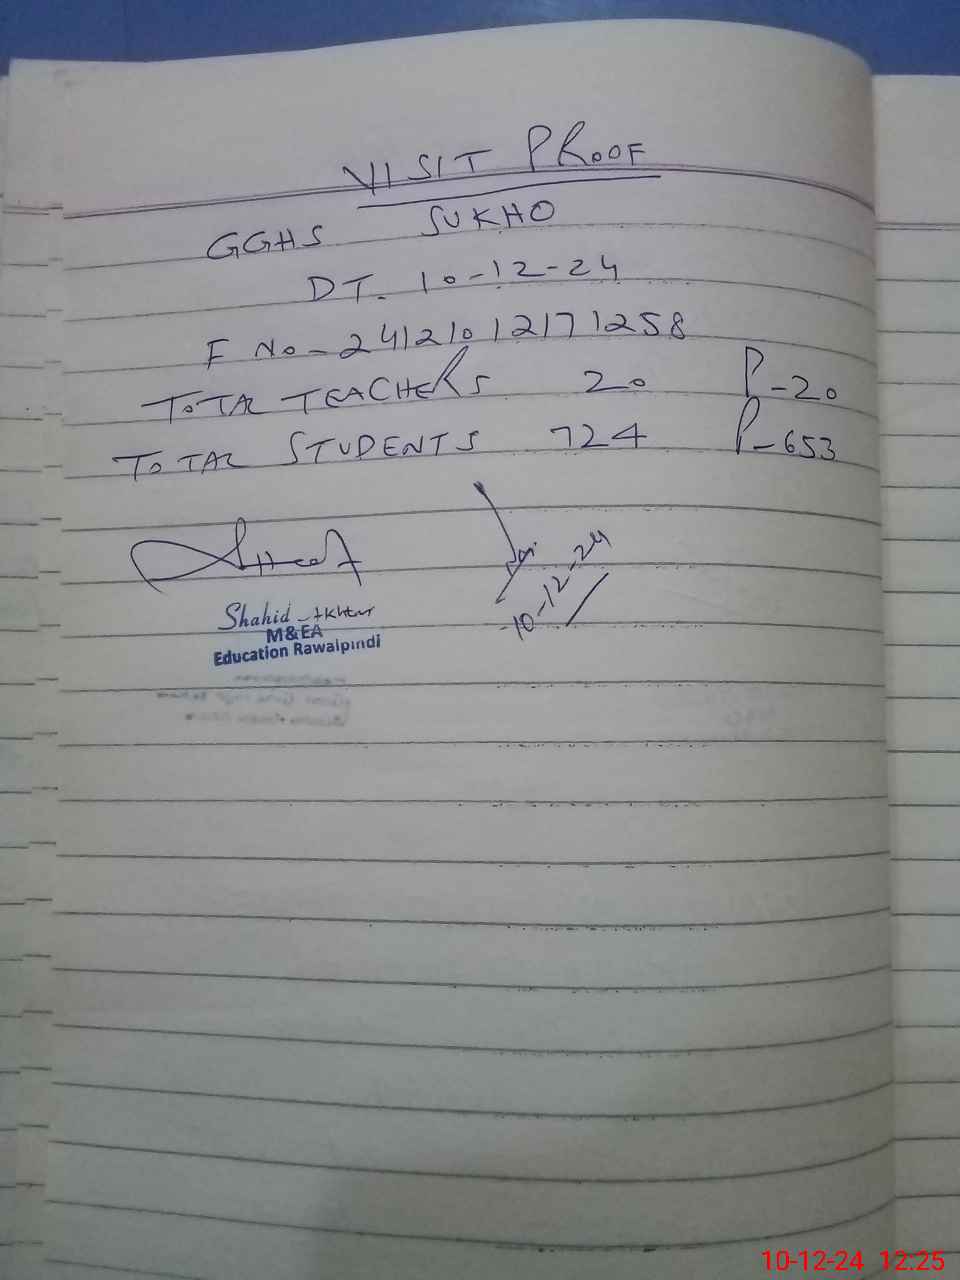 VISIT PROOF
GGHS SUKHO
DT. 10-12-24
F No - 24121012171258
TOTAL TEACHERS 20 P-20
TOTAL STUDENTS 724 P-653
10-12-24
Shahid Akhtar
M&EA
Education Rawalpindi
10-12-24 12:25